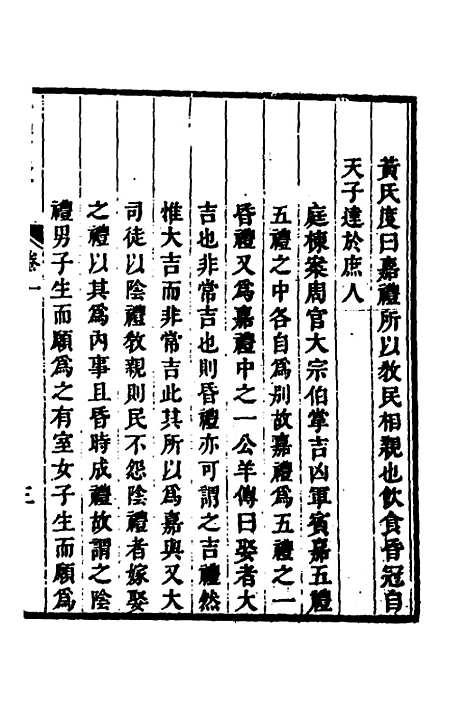 黃氏度曰嘉禮所以敎民相親也飮食昏冠自
天子達於庶人
庭棟案周官大宗伯掌吉凶軍賓嘉五禮
五禮之中各自爲別故嘉禮爲五禮之一
昏禮又爲嘉禮中之一公羊傳曰娶者大
吉也非常吉也則昏禮亦可謂之吉禮然
惟大吉而非常吉此其所以爲嘉與又大
司徒以陰禮敎親則民不怨陰禮者嫁娶
之禮以其爲內事且昏時成禮故謂之陰
禮男子生而願爲之有室女子生而願爲
卷一
三